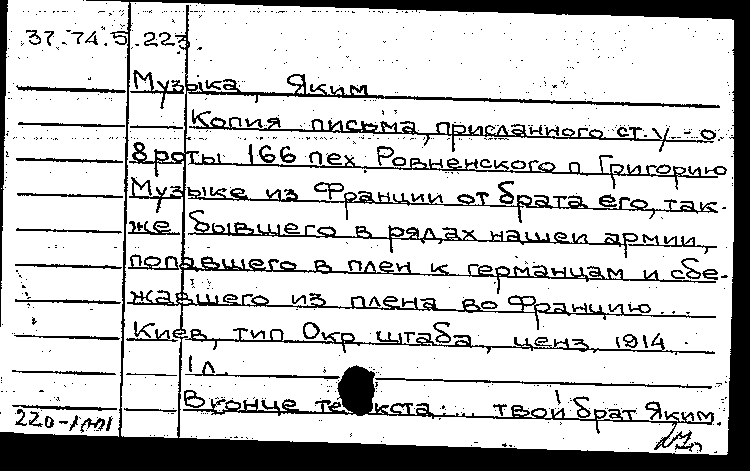 37.74.5.223.
Музыка, Яким
Копия письма, присланного ст. у-о.
8 роты 166 пех. Ровненского п. Григорию
Музыке из Франции от брата его, так-
же бывшего в рядах нашей армии,
попавшего в плен к германцам и сбе-
жавшего из плена во Францию...
Киев, тип. Окр. штаба, ценз. 1914.
1 л.
В конце текста: ... твой брат Яким.
220-1001